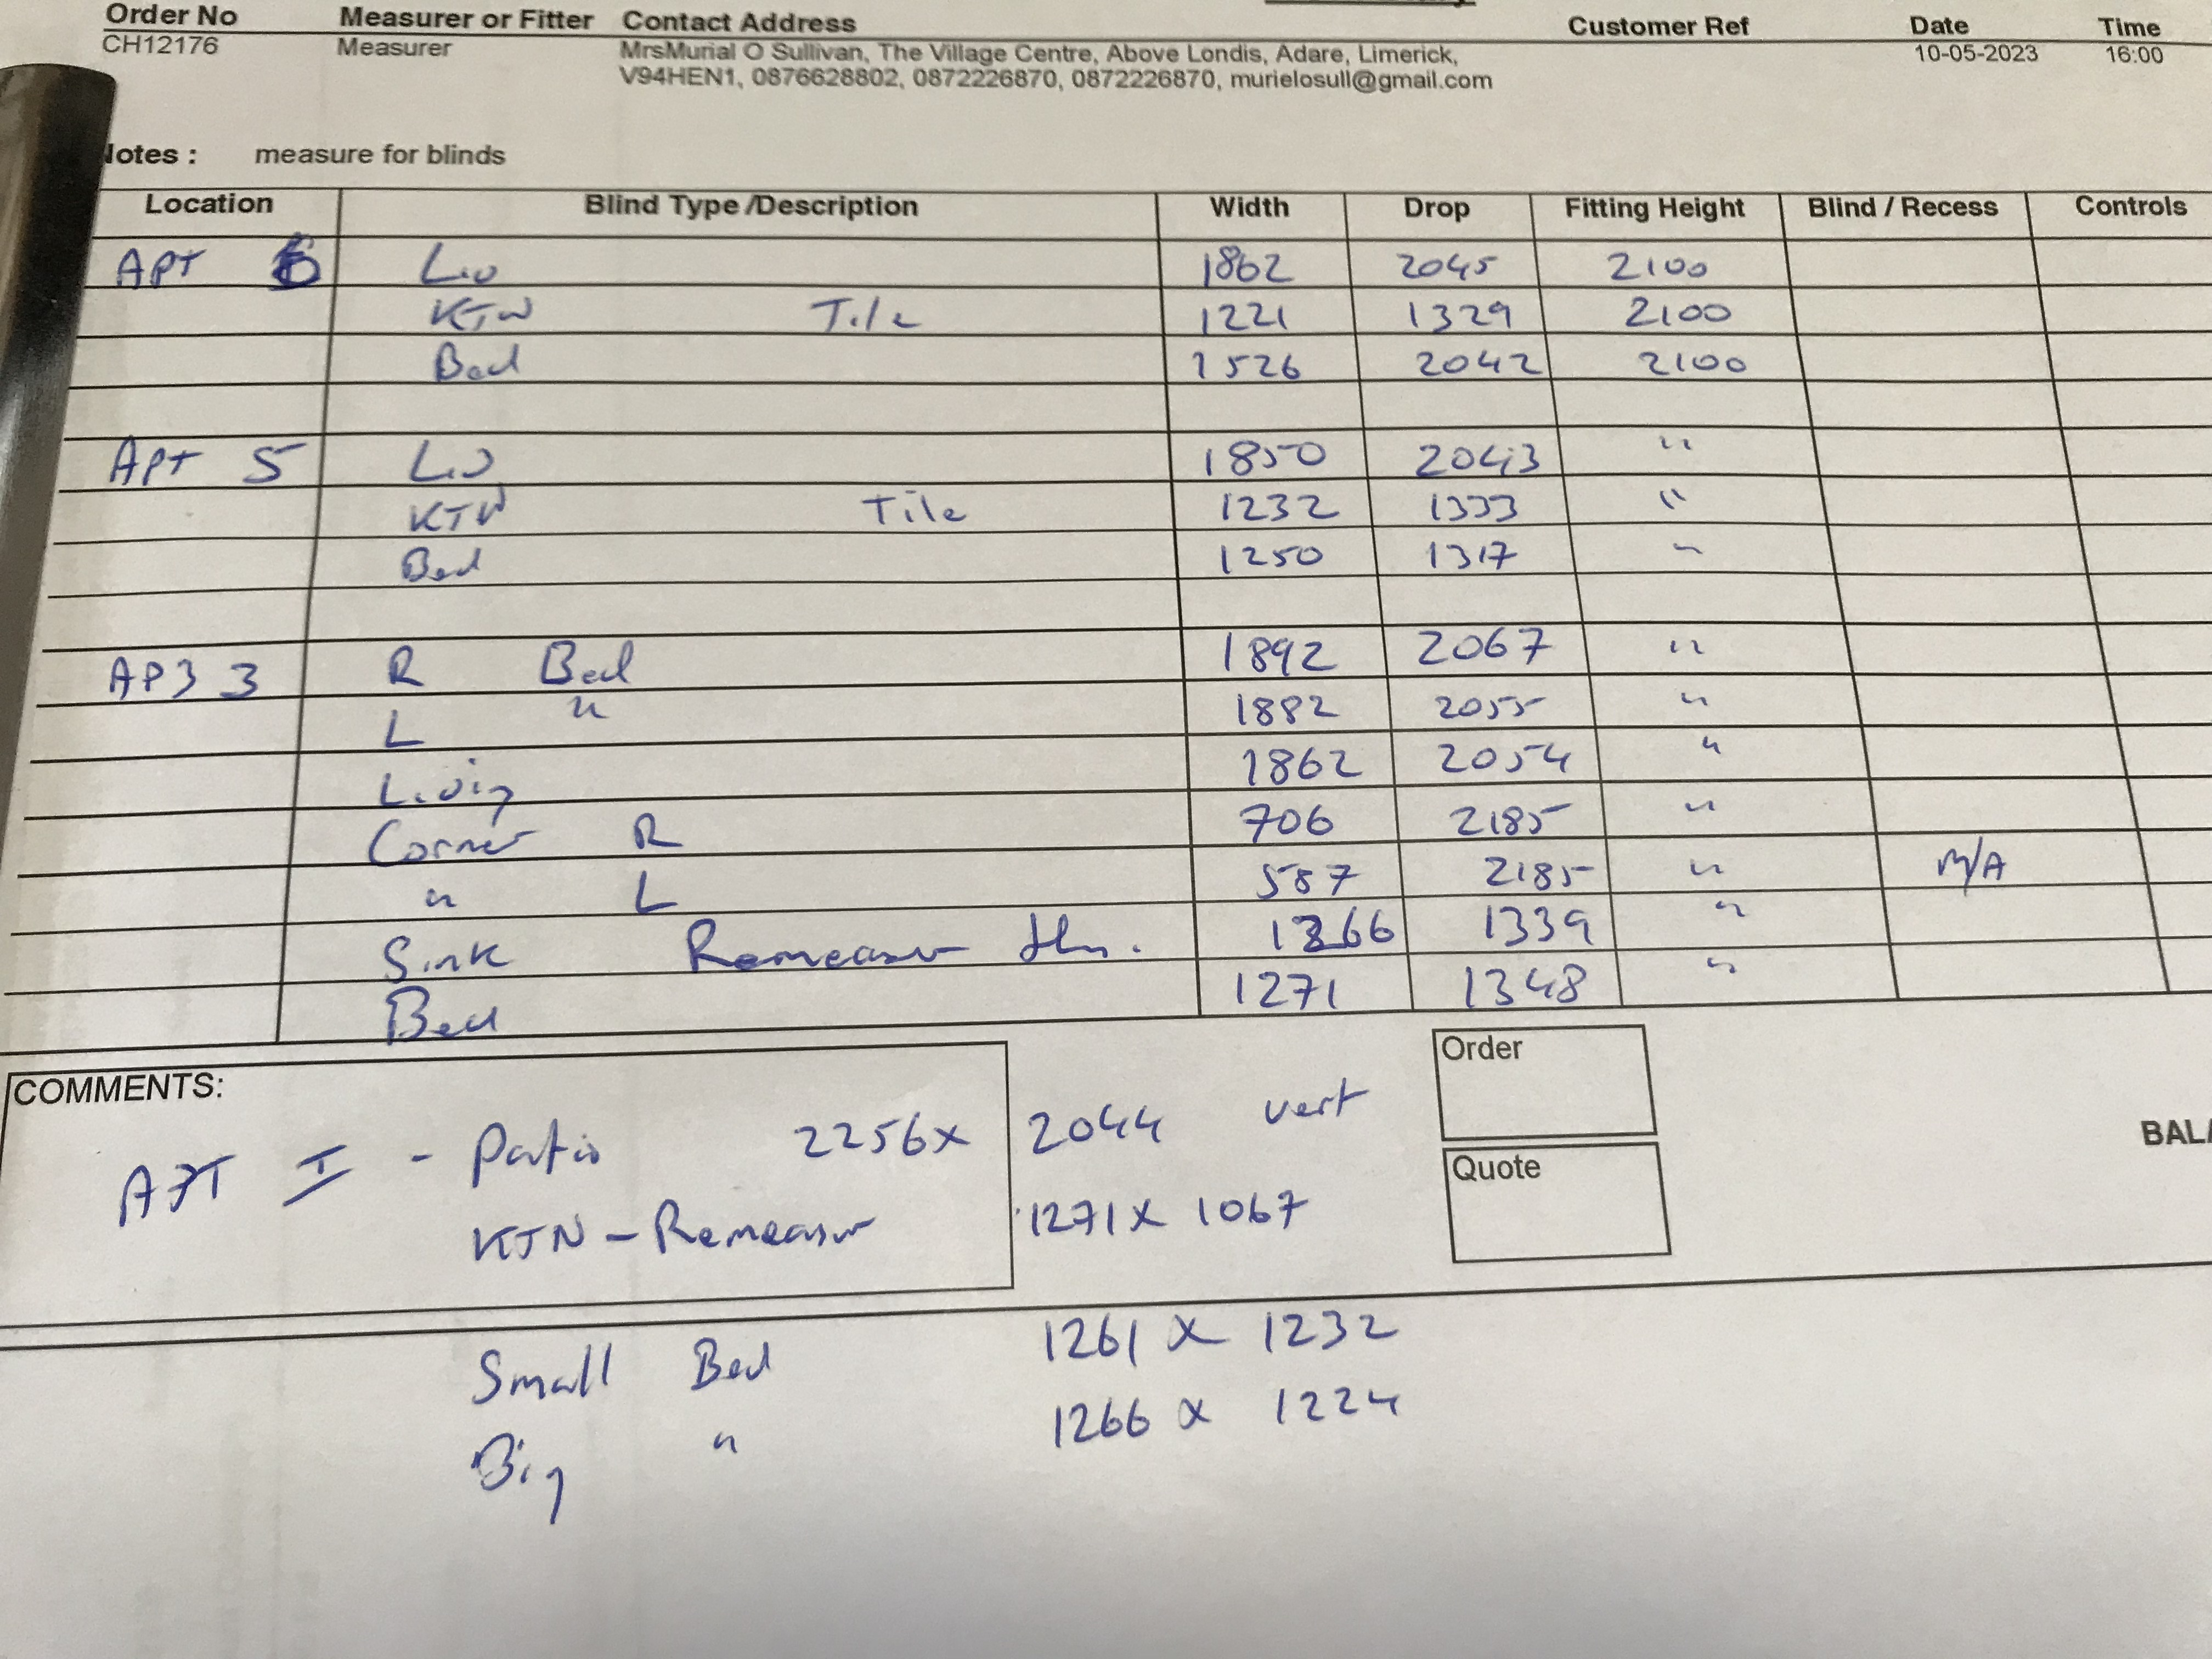 Order No Measurer or Fitter Contact Address Customer Ref Date Time
CH12176 Measurer MrsMurial O Sullivan, The Village Centre, Above Londis, Adare, Limerick, 10-05-2023 16:00
V94HEN1, 0876628802, 0872226870, 0872226870, murielosull@gmail.com
Notes : measure for blinds
Location Blind Type /Description Width Drop Fitting Height Blind / Recess Controls
APT 6 Liv 1862 2045 2100
KTN Tile 1221 1329 2100
Bed 1526 2042 2100
APT 5 Liv 1850 2043 "
KTN Tile 1232 1333 "
Bed 1250 1317 "
AP3 3 R Bed 1892 2067 "
L " 1882 2055 "
Living 1862 2054 "
Corner R 706 2185 "
" L 587 2185 " M/A
Sink Remeasur 1266 1339 "
Bed 1271 1348 "
COMMENTS:
Order
APT I - Patio 2256 x 2044 vert
BALA
Quote
KTN - Remeasur 1271 x 1067
Small Bed 1261 x 1232
Big " 1266 x 1224